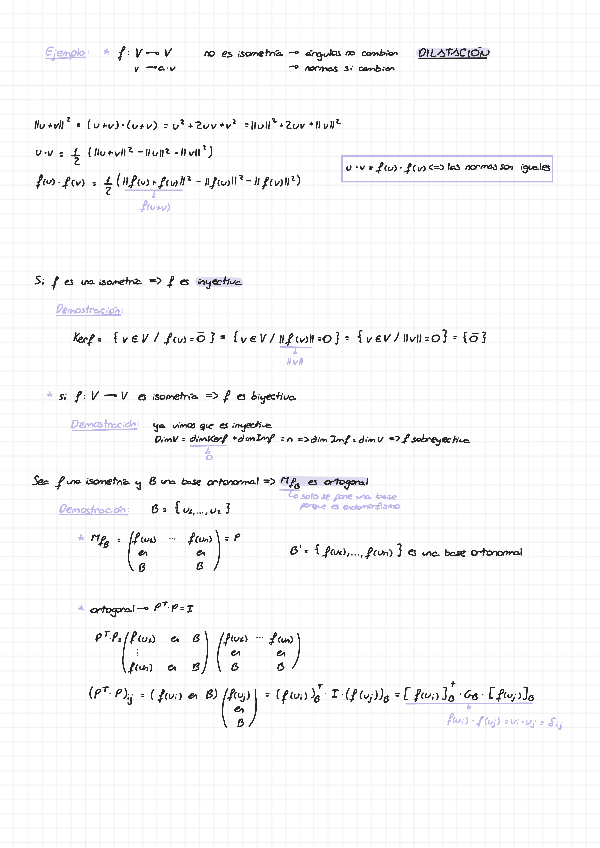 Ejemplo: * f: V → V no es isometría → ángulos no cambian DILATACIÓN
v → a·v → normas si cambian
||u+v||² = (u+v)·(u+v) = u² + 2uv + v² = ||u||² + 2uv + ||v||²
u·v = 1/2 (||u+v||² - ||u||² - ||v||²)
u·v = f(u)·f(v) <=> las normas son iguales
f(u)·f(v) = 1/2 (||f(u)+f(v)||² - ||f(u)||² - ||f(v)||²)
f(u+v)
Si f es una isometría => f es inyectiva
Demostración:
Kerf = {v ∈ V / f(v) = 0̄} = {v ∈ V / ||f(v)|| = 0} = {v ∈ V / ||v|| = 0} = {0̄}
||v||
* si f: V → V es isometría => f es biyectiva
Demostración: ya vimos que es inyectiva
DimV = dimKerf + dimImf = n => dim Imf = dim V => f sobreyectiva
0
Sea f una isometría y B una base ortonormal => Mf_B es ortogonal
↳ solo se pone una base
porque es endomorfismo
Demostración: B = {u₁,...,u₂}
* Mf_B = (f(u₁) ... f(un)) = P
en en
B B
B' = {f(u₁),...,f(un)} es una base ortonormal
* ortogonal → Pᵀ·P = I
Pᵀ·P = (f(u₁) en B) (f(u₁) ... f(un))
⋮ en en
f(un) en B B B
(Pᵀ·P)ij = (f(ui) en B) (f(uj) en B) = (f(ui))ᵀ_B · I · (f(uj))_B = [f(ui)]ᵀ_B · G_B · [f(uj)]_B
f(ui)·f(uj) = ui·uj = δij